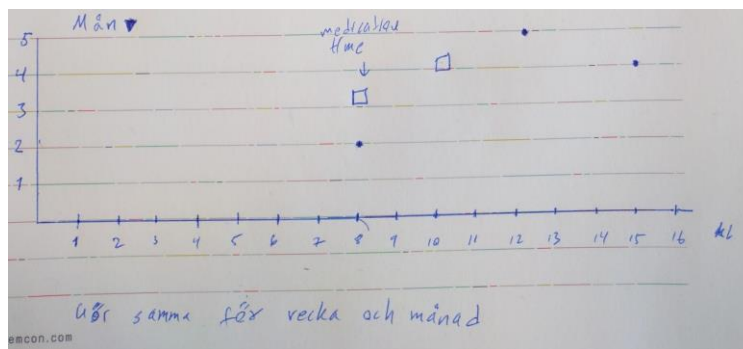 Mån▼
medication
time
5
4
3
2
1
1 2 3 4 5 6 7 8 9 10 11 12 13 14 15 16 kl
Gör samma för vecka och månad
emcon.com